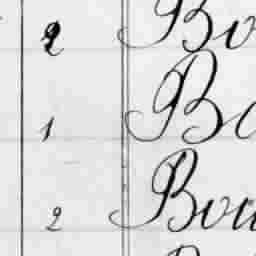 2 Bo
1 Bo
2 Bou